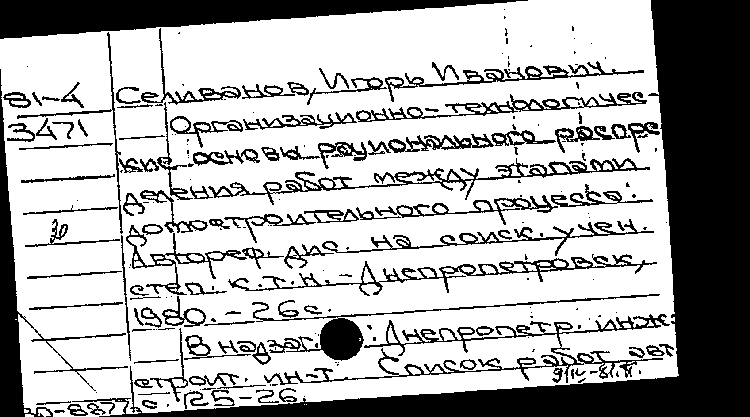 81-4
3471
Селиванов, Игорь Иванович.
Организационно-технологичес-
кие основы рационального распре
деления работ между этапами
домостроительного процесса:
Автореф. дис. на соиск. учен.
степ. к.т.н. - Днепропетровск,
1980. - 26 с.
30
В надзаг.: Днепропетр. инж.
строит. ин-т. Список работ авт
с. 25-26.